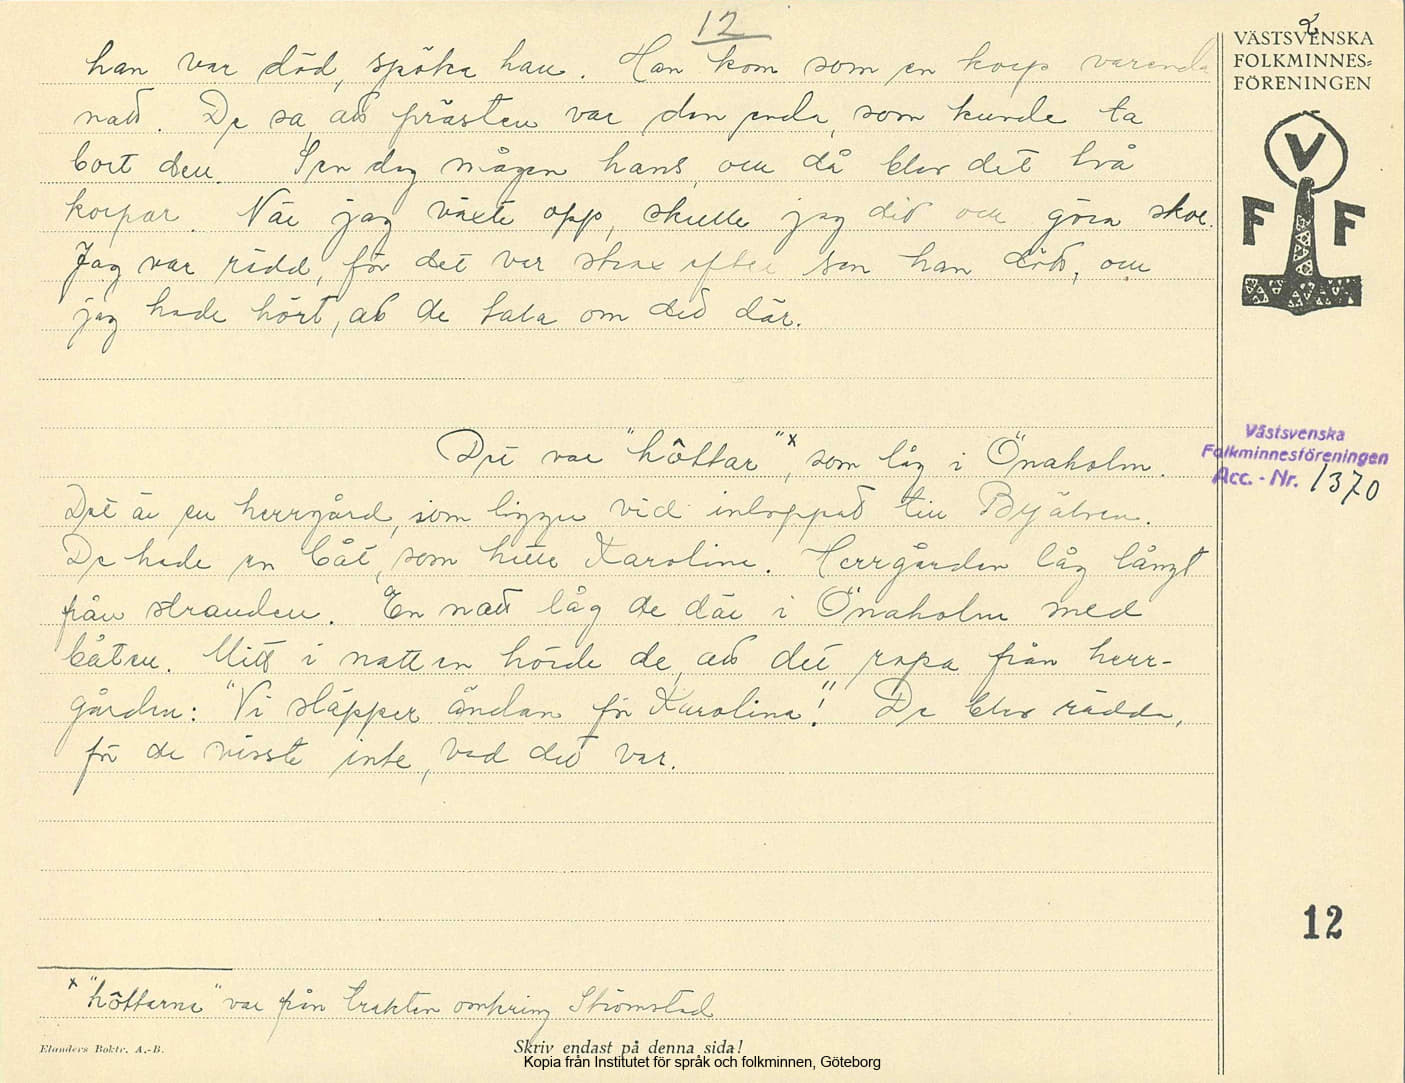 12
2
VÄSTSVENSKA
FOLKMINNES=
FÖRENINGEN
han var död, spöka han. Han kom som en korp varenda
natt. De sa, att prästen var den enda, som kunde ta
bort den. Sen dog mågen hans, och då blev det två
korpar. När jag växte opp, skulle jag dit och göra skor.
Jag var rädd, för det var strax efter sen han dött, och
jag hade hört, att de tala om det där.
V
F F
Det var "höttar"x, som låg i Önaholm.
Det är en herrgård, som ligger vid inloppet till Byälven.
De hade en båt, som hette Karolina. Herrgården låg långt
från stranden. En natt låg de där i Önaholm med
båten. Mitt i natten hörde de, att det ropa från herr-
gården: "Vi släpper ändan för Karolina!" De blev rädda,
för de visste inte, vad det var.
Västsvenska
Folkminnesföreningen
Acc. - Nr. 1370
12
x "höttarna" var från trakten omkring Strömstad
Elanders Boktr. A.-B.
Skriv endast på denna sida!
Kopia från Institutet för språk och folkminnen, Göteborg